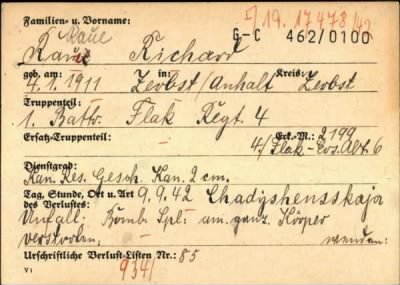 5/19. 17478/42
Familien- u. Vorname:
Raue
G-C 462/0100
Raue Richard
geb. am: in: Kreis:
4.1.1911 Zerbst/Anhalt Zerbst
Truppenteil:
1. Battr. Flak Regt. 4
Ersatz-Truppenteil: Erk.-M.: 2199
4./Flak-Ers. Abt. 6
Dienstgrad:
Kan. Res. Gesch. Kan. 2 cm.
Tag, Stunde, Ort u. Art 9.9.42 Chadyshensskaja
des Verlustes:
Unfall: Bomb. Spl. am ganz. Körper
verstorben. wenden!
Urschriftliche Verlust-Listen Nr.: 85
934/
V 1